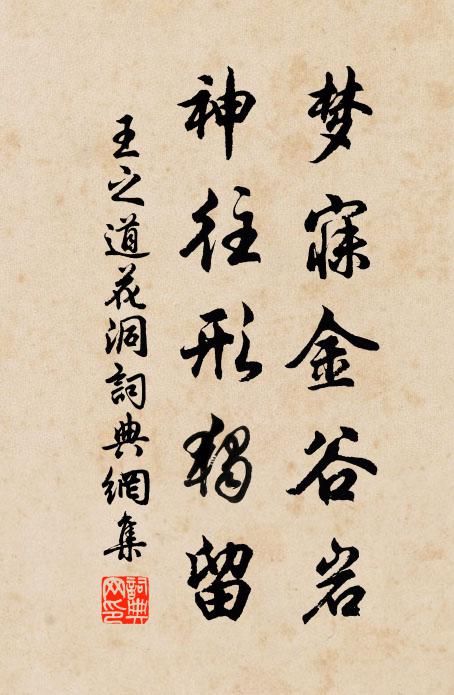 梦寐金谷岩
神往形独留
王之道花洞詞典網集
詞典
网印